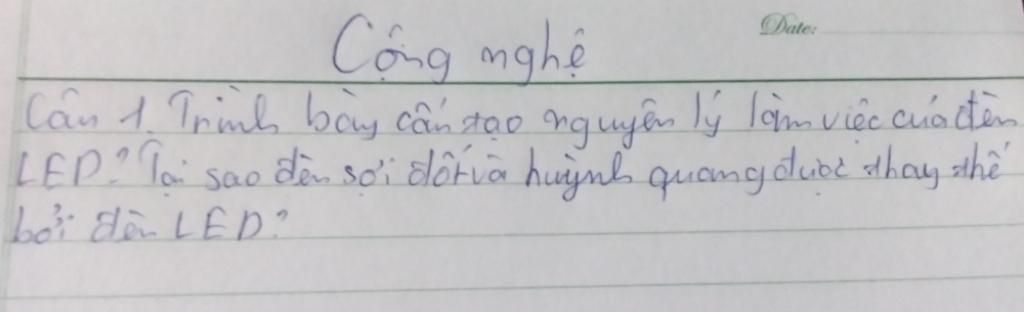 Date:
Công nghệ
Câu 1. Trình bày cấu tạo nguyên lý làm việc của đèn
LED? Tại sao đèn sợi đốt và huỳnh quang được thay thế
bởi đèn LED?